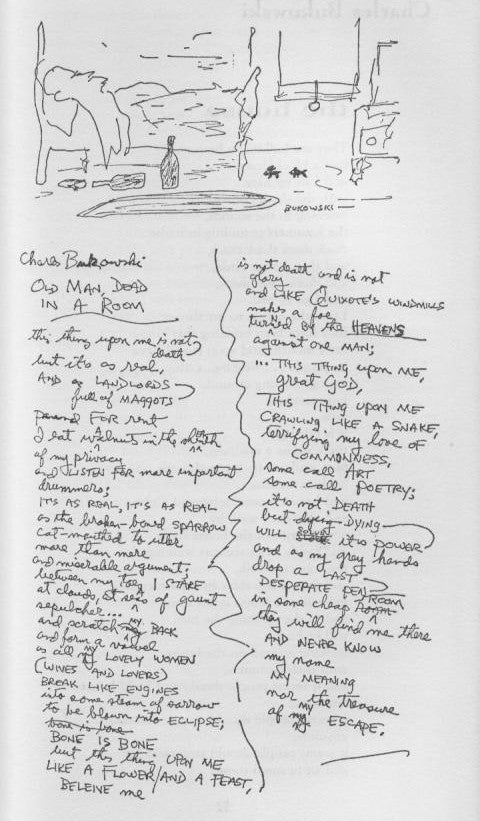 BUKOWSKI
Charles Bukowski
OLD MAN, DEAD
IN A ROOM
this thing upon me is not
death
but it's as real,
AND as LANDLORDS
full of MAGGOTS
pound FOR rent
I eat walnuts in the sheath
of my privacy
and LISTEN FOR more important
drummers;
IT'S AS REAL, IT'S AS REAL
as the broken-boned SPARROW
cat-mouthed to utter
more than mere
and miserable argument;
between my toes I STARE
at clouds, at seas of gaunt
sepulcher...
and scratch my BACK
and form a vowel
as all my LOVELY WOMEN
(WIVES AND LOVERS)
BREAK LIKE ENGINES
into some steam of sorrow
to be blown into ECLIPSE;
bone is bone
BONE IS BONE
but this thing UPON ME
LIKE A FLOWER/AND A FEAST,
BELEIVE me
is not death and is not
glory
and LIKE QUIXOTE'S WINDMILLS
makes a foe
turned by the HEAVENS
against one MAN;
... THIS THING upon ME,
great GOD,
THIS THING UPON ME
CRAWLING LIKE A SNAKE,
terrifying my love OF
COMMONNESS,
some call ART
some call POETRY;
it's not DEATH
but dying DYING
WILL solve its POWER
and as my grey hands
drop a LAST
DESPERATE PEN
in some cheap ROOM
they will find me there
AND NEVER KNOW
my name
MY MEANING
nor the treasure
of my ESCAPE.